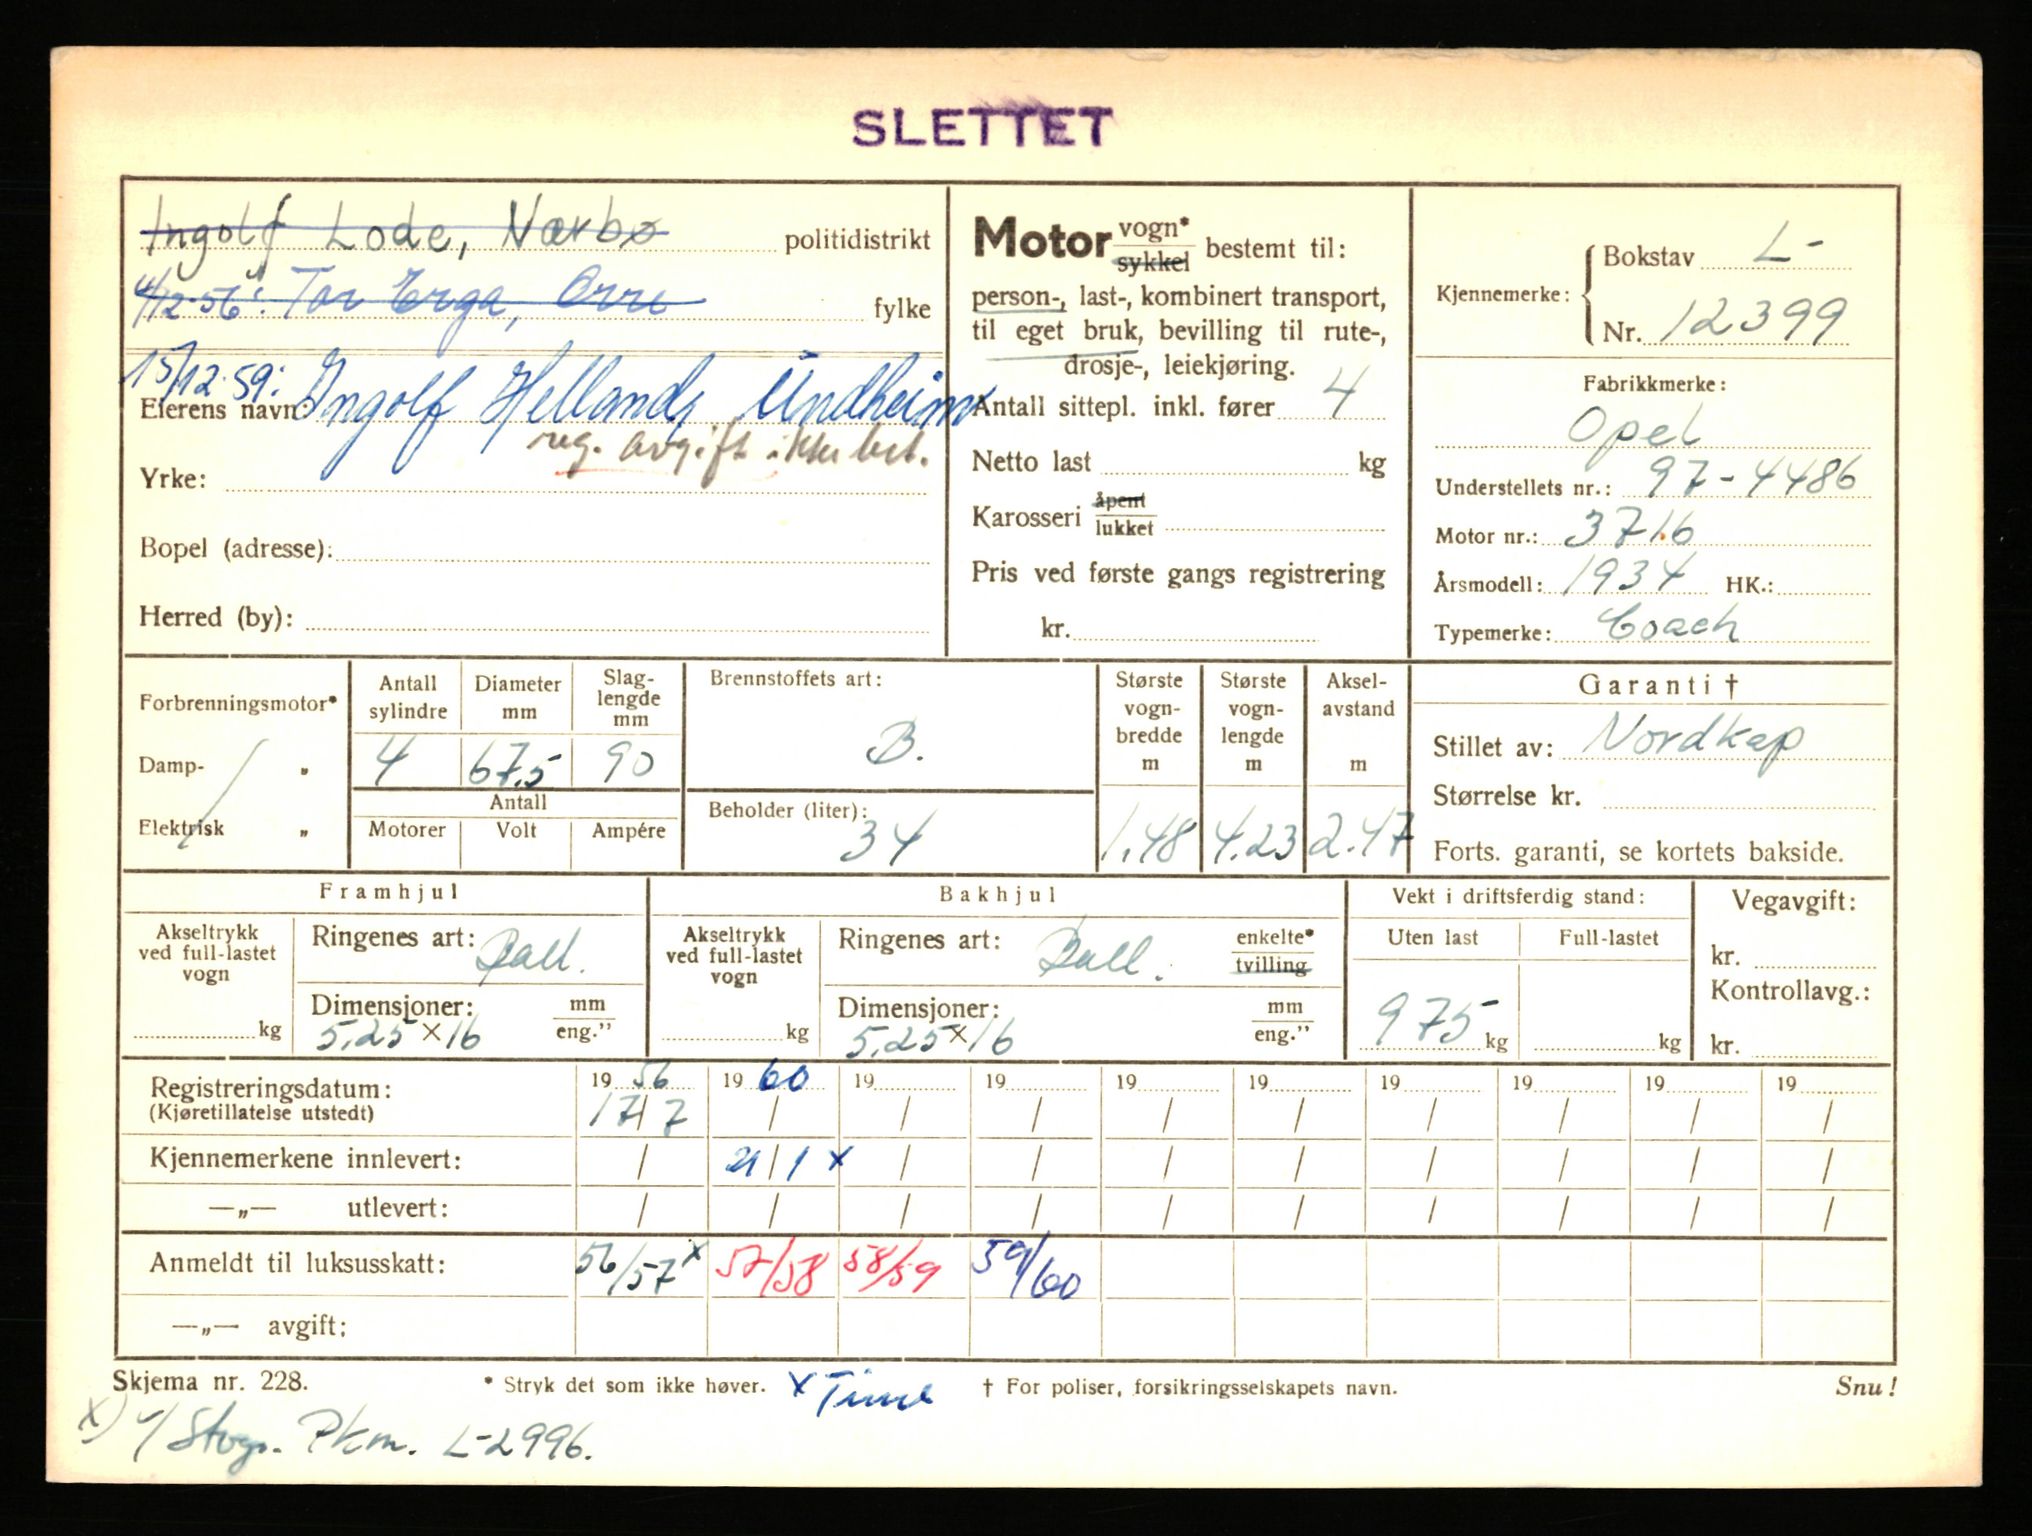 SLETTET
Ingolf Lode, Nærbø politidistrikt
4/12-56: Tor Erga, Orre fylke
15/12.59: Ingolf Hellands Undheim
Eierens navn:
reg. avgift ikke bet.
Yrke:
Bopel (adresse):
Herred (by):
Motor vogn* sykkel bestemt til:
person-, last-, kombinert transport,
til eget bruk, bevilling til rute-,
drosje-, leiekjøring.
Antall sittepl. inkl. fører 4
Netto last kg
Karosseri åpent lukket
Pris ved første gangs registrering
kr.
Kjennemerke: Bokstav L-
Nr. 12399
Fabrikkmerke:
Opel
Understellets nr.: 97-4486
Motor nr.: 3716
Årsmodell: 1934 HK.:
Typemerke: Coach
Forbrenningsmotor*
Damp- „
Elektrisk „
Antall sylindre
4
Diameter mm
67,5
Slag-lengde mm
90
Antall
Motorer Volt Ampére
Brennstoffets art:
B.
Beholder (liter):
34
Største vogn-bredde m
1.48
Største vogn-lengde m
4.23
Aksel-avstand m
2.47
Garanti †
Stillet av: Nordkap
Størrelse kr.
Forts. garanti, se kortets bakside.
Framhjul
Akseltrykk ved full-lastet vogn
kg
Ringenes art: Ball.
Dimensjoner: mm eng.”
5,25 x 16
Bakhjul
Akseltrykk ved full-lastet vogn
kg
Ringenes art: Ball. enkelte* tvilling
Dimensjoner: mm eng.”
5,25 x 16
Vekt i driftsferdig stand:
Uten last Full-lastet
975 kg kg
Vegavgift:
kr.
Kontrollavg.:
kr.
Registreringsdatum: 19 56 19 60 19 19 19 19 19 19 19 19
(Kjøretillatelse utstedt) 17/7 / / / / / / / / /
Kjennemerkene innlevert: / 21/1 x / / / / / / / /
—„— utlevert: / / / / / / / / / /
Anmeldt til luksusskatt: 56/57 x 57/58 58/59 59/60
—„— avgift:
Skjema nr. 228. * Stryk det som ikke høver. x Time † For poliser, forsikringsselskapets navn. Snu!
x) Pkm. L-2996.